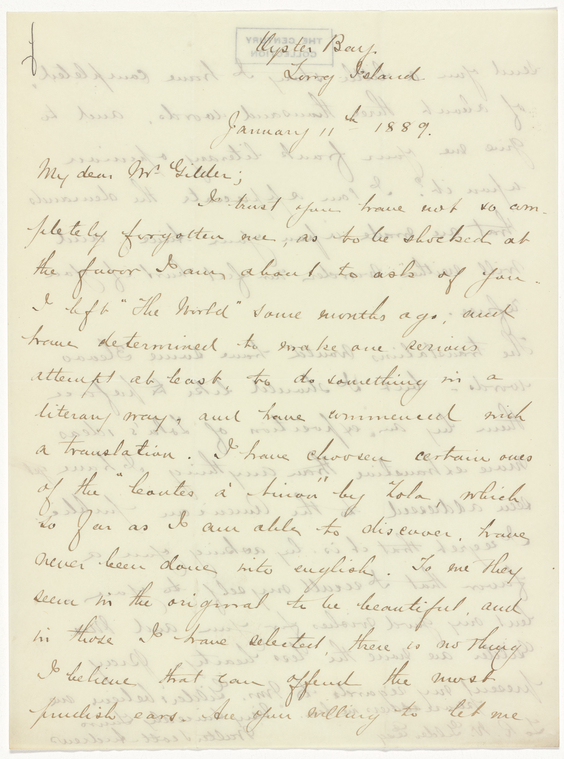 Oyster Bay.
Long Island
January 11th 1889.
My dear Mr Gilder;
I trust you have not so com-
pletely forgotten me, as to be shocked at
the favor I am about to ask of you.
I left "The World" some months ago; and
have determined to make one serious
attempt at least to do something in a
literary way, and have commenced with
a translation. I have choosen certain ones
of the "Contes à Ninon" by Zola which
so far as I am able to discover, have
never been done into english. To me they
seem in the original to be beautiful, and
in those I have selected, there is nothing
I believe that can offend the most
prudish ears. Are you willing to let me
THE CENTURY
COLLECTION